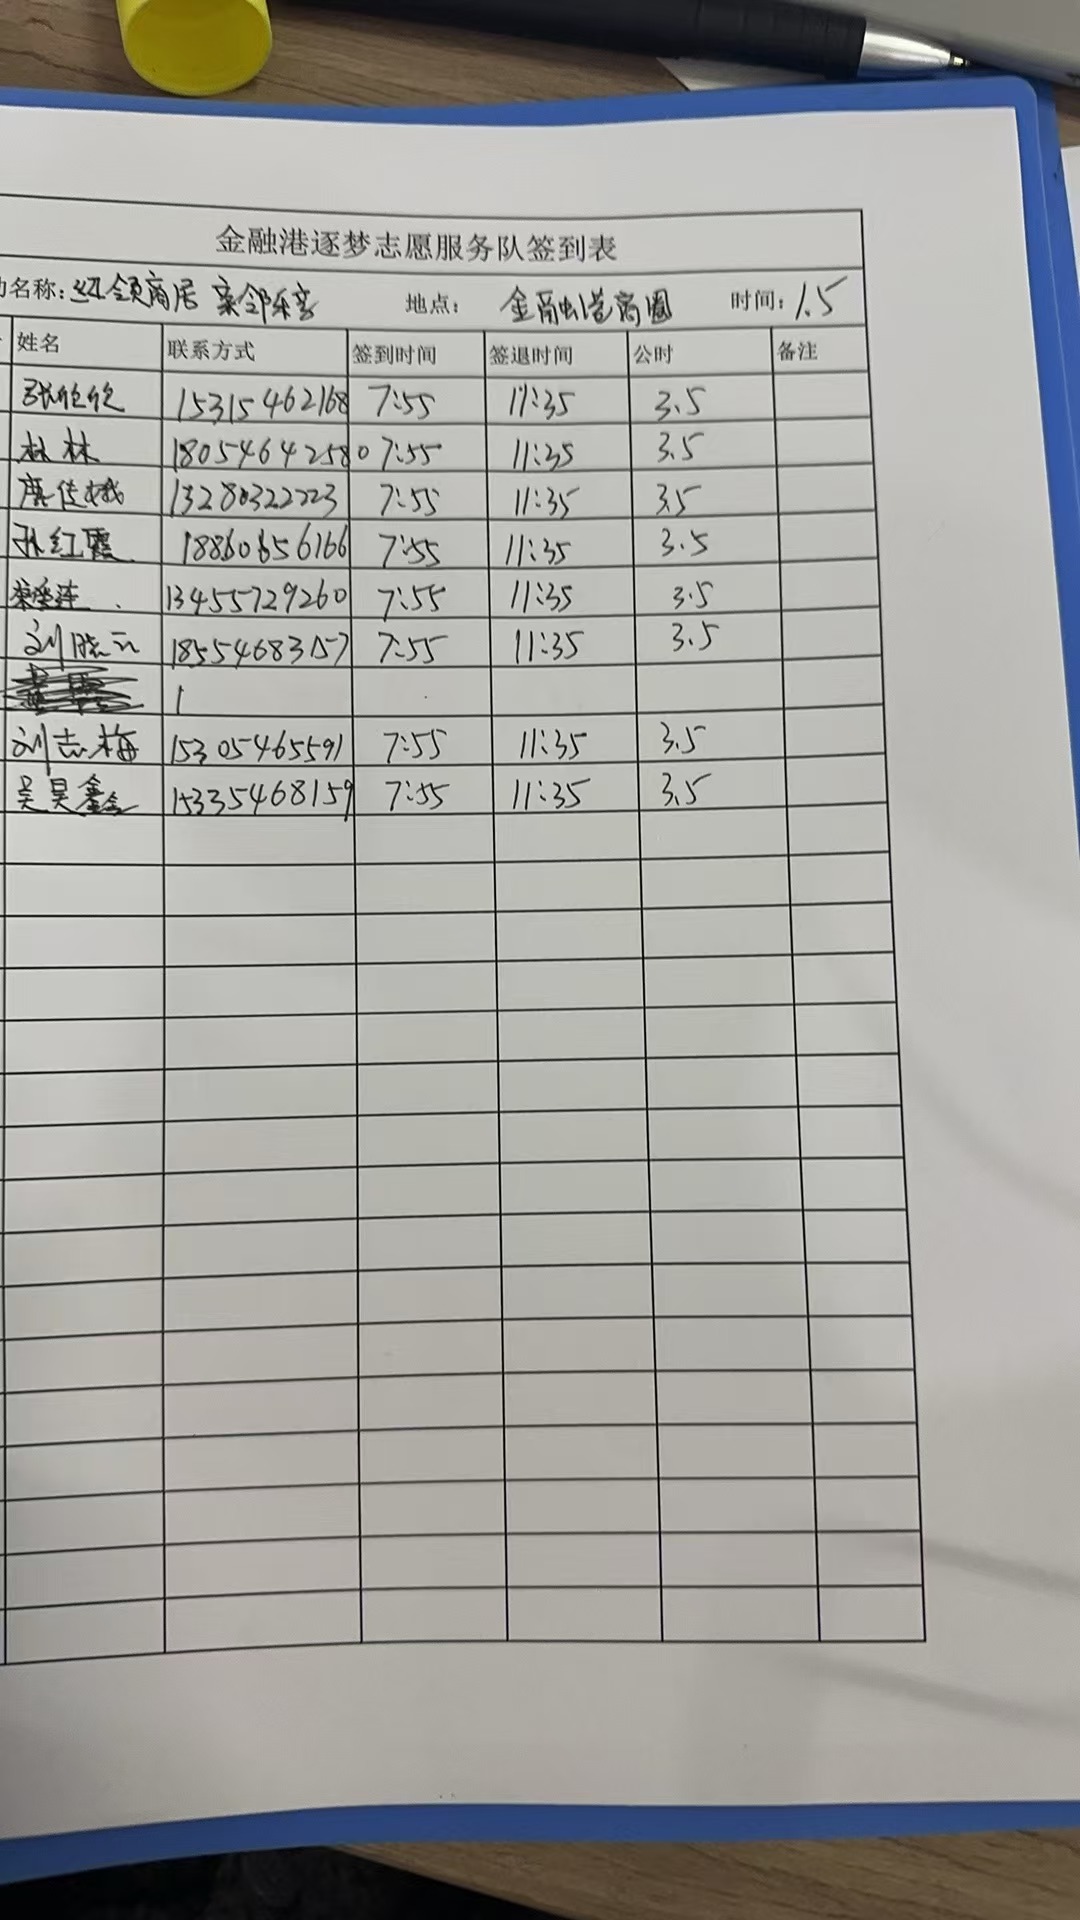 金融港逐梦志愿服务队签到表
动名称: 红领商居 亲邻乐享 地点: 金融港商圈 时间: 1.5
姓名 联系方式 签到时间 签退时间 公时 备注
15315462168 7:55 11:35 3.5
林林 18054642580 7:55 11:35 3.5
唐佳娥 13280322223 7:55 11:35 3.5
孙红霞 18860656166 7:55 11:35 3.5
13455729260 7:55 11:35 3.5
刘晓云 18554683157 7:55 11:35 3.5
刘志梅 15305465591 7:55 11:35 3.5
吴昊鑫 15335468159 7:55 11:35 3.5